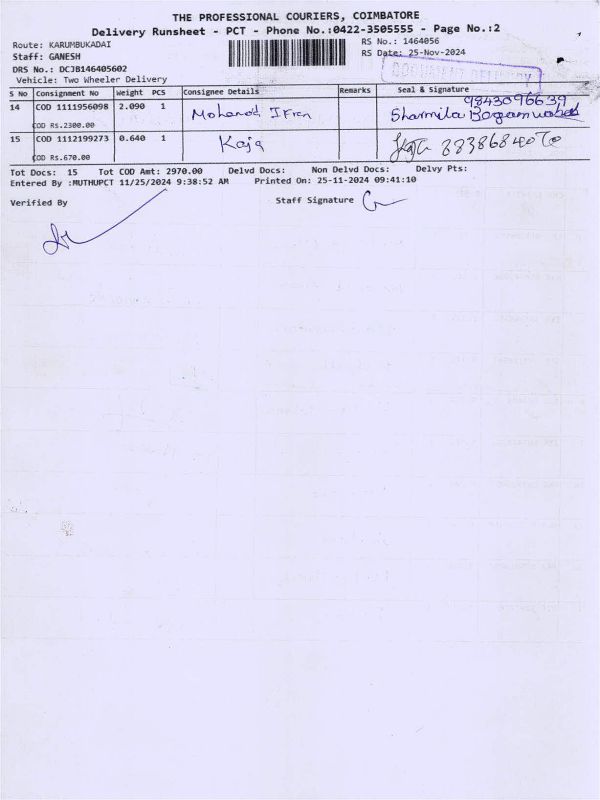 THE PROFESSIONAL COURIERS, COIMBATORE
Delivery Runsheet - PCT - Phone No.:0422-3505555 - Page No.:2
Route: KARUMBUKADAI
RS No.: 1464056
Staff: GANESH
RS Date: 25-Nov-2024
DRS No.: DCJB146405602
DOCUMENT DELIVERY
Vehicle: Two Wheeler Delivery
S No Consignment No Weight PCS Consignee Details Remarks Seal & Signature
14 COD 1111956098 2.090 1 Mohamed Ifran 9843096639
COD RS.2300.00 Sharmila
15 COD 1112199273 0.640 1 Kaja
COD RS.670.00
Tot Docs: 15 Tot COD Amt: 2970.00 Delvd Docs: Non Delvd Docs: Delvy Pts:
Entered By :MUTHUPCT 11/25/2024 9:38:52 AM Printed On: 25-11-2024 09:41:10
Verified By Staff Signature